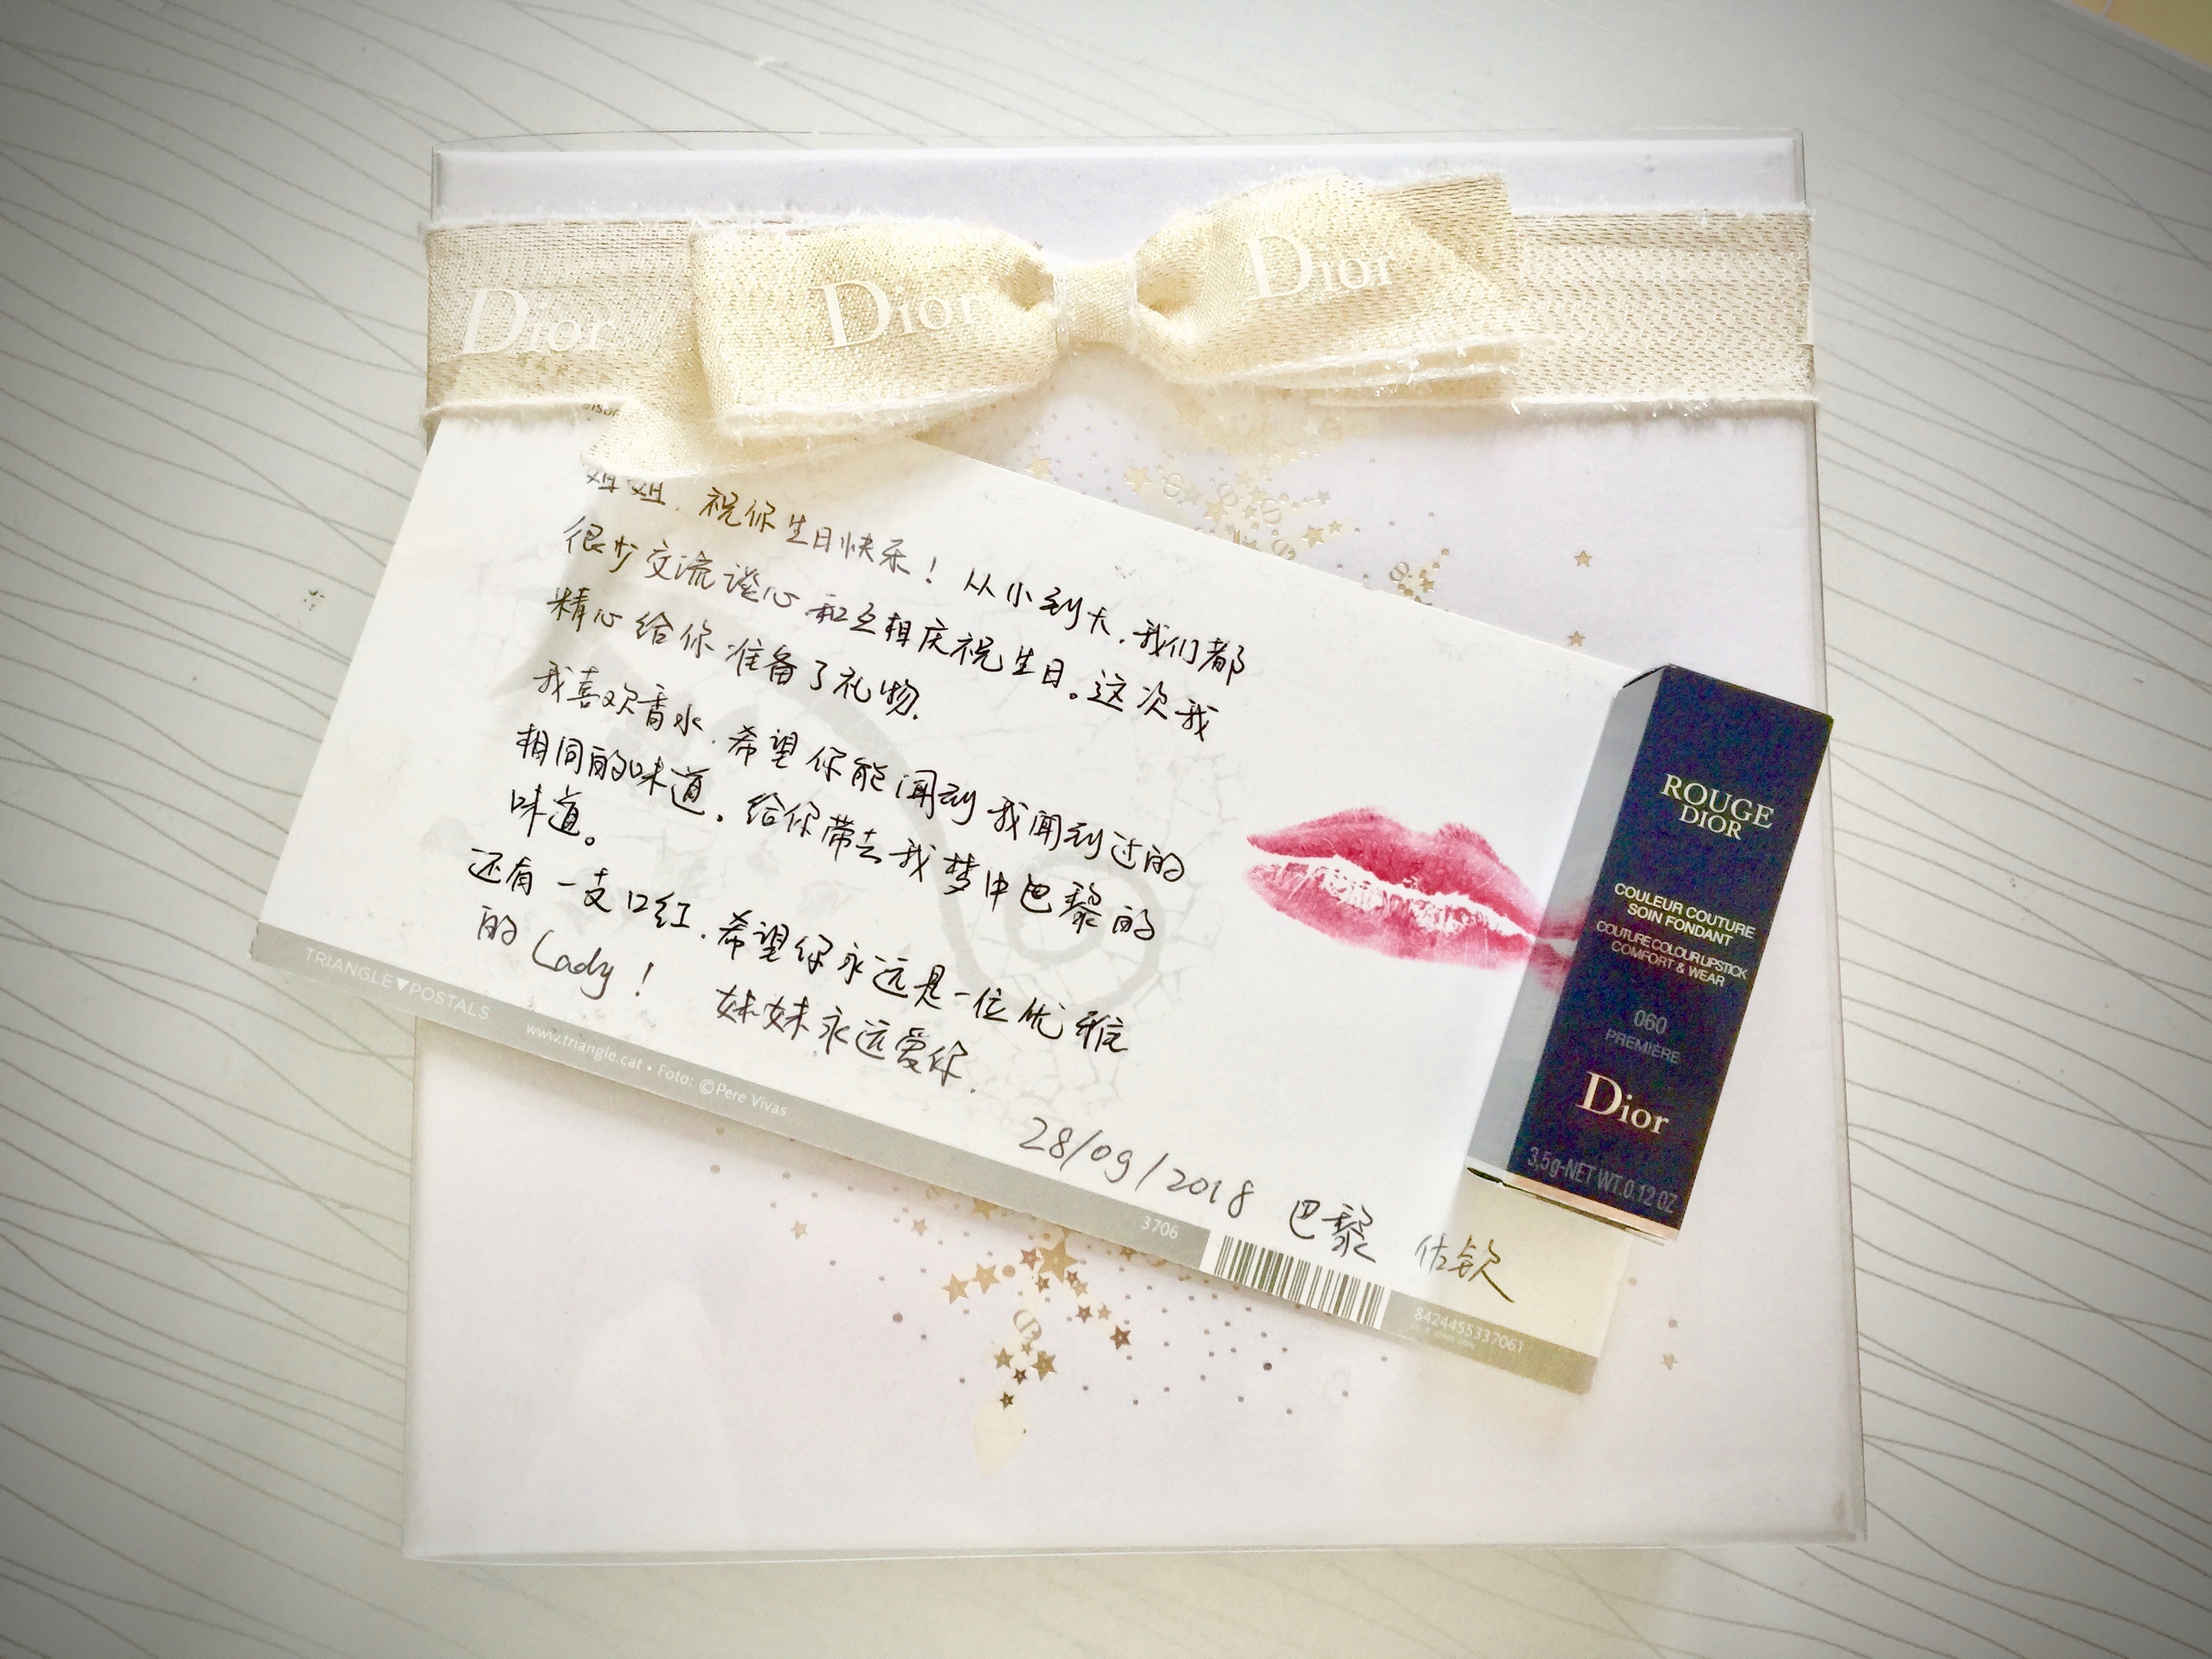 Dior
Dior
Dior
姐姐，祝你生日快乐！从小到大，我们都
很少交流谈心和互相庆祝生日。这次我
精心给你准备了礼物.
我喜欢香水，希望你能闻到我闻到过的
相同的味道。给你带去我梦中巴黎的
味道。
还有一支口红，希望你永远是一位优雅
的Lady！
妹妹永远爱你.
28/09/2018 巴黎 佑钦
TRIANGLE▼POSTALS
www.triangle.cat • Foto: ©Pere Vivas
3706
8424455337061
ROUGE
DIOR
COULEUR COUTURE
SOIN FONDANT
COUTURE COLOUR LIPSTICK
COMFORT & WEAR
060
PREMIÈRE
Dior
3,5g-NET WT.0.12 OZ